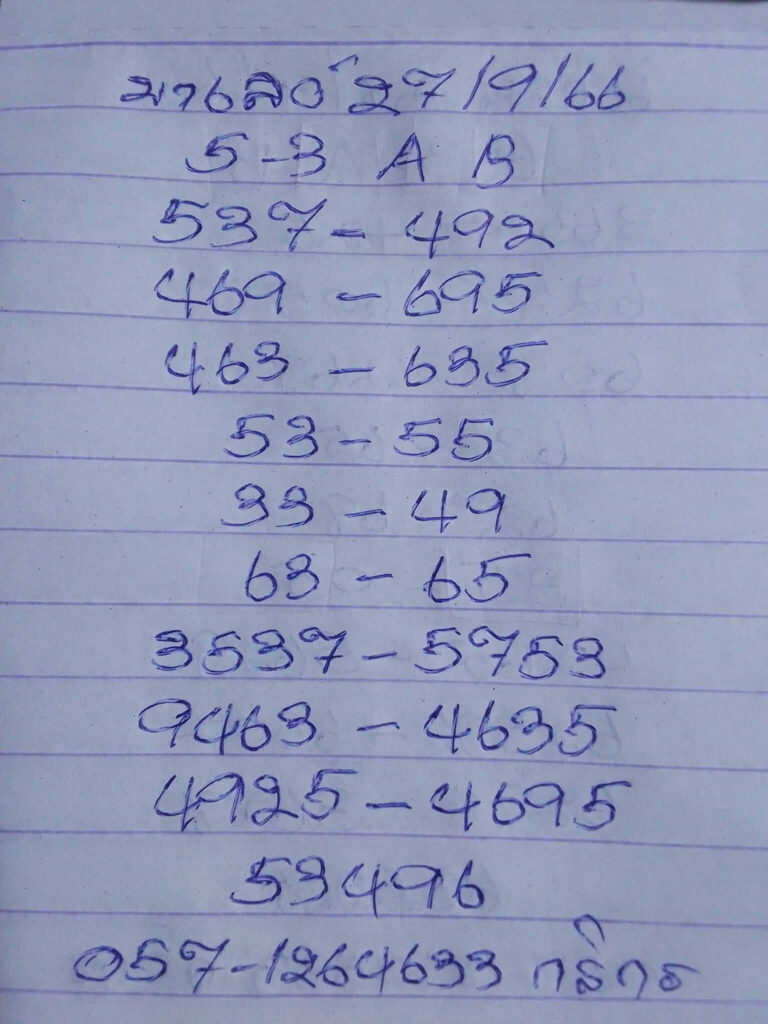 มาเลย์ 27/9/66
5-3 A B
537 - 492
469 - 695
463 - 635
53 - 55
33 - 49
63 - 65
3537 - 5753
9463 - 4635
4925 - 4695
53496
057-1264633 กสิกร